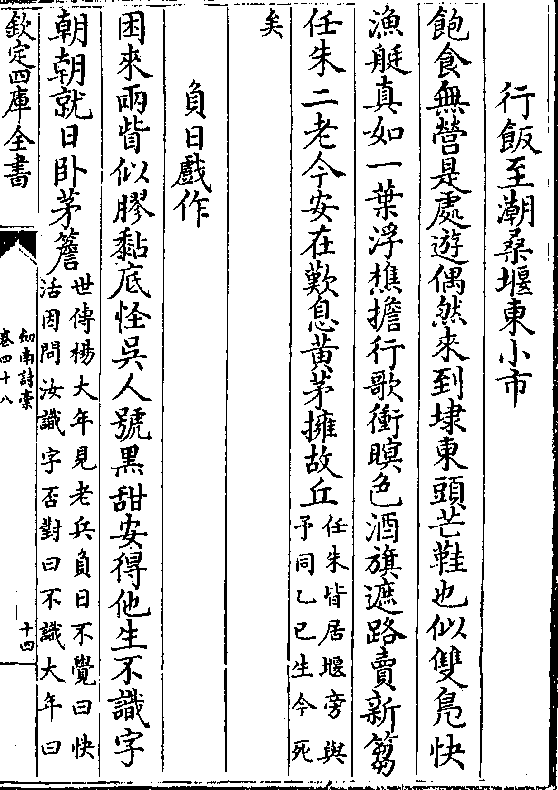 行飯至潮桑堰東小市
飽食無營是處遊偶然來到埭東頭芒鞋也似雙鳬快
漁艇真如一葉浮樵擔行歌衝暝色酒旗遮路賣新篘
任朱二老今安在歎息黄茅擁故丘任朱皆居堰旁與
予同乙巳生今死
矣
負日戲作
困來兩眥似膠黏底怪吳人號黑甜安得他生不識字
朝朝就日卧茅簷世傳楊大年見老兵負日不覺曰快
活因問汝識字否對曰不識大年曰
欽定四庫全書
劍南詩槀
卷四十八
十四